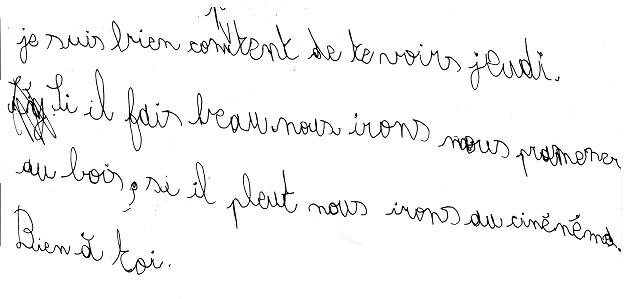 je suis bien content de te voirs jeudi.
Si il fais beau nous irons nous promener
au bois ; si il pleut nous irons au cinénéma.
Bien à toi.